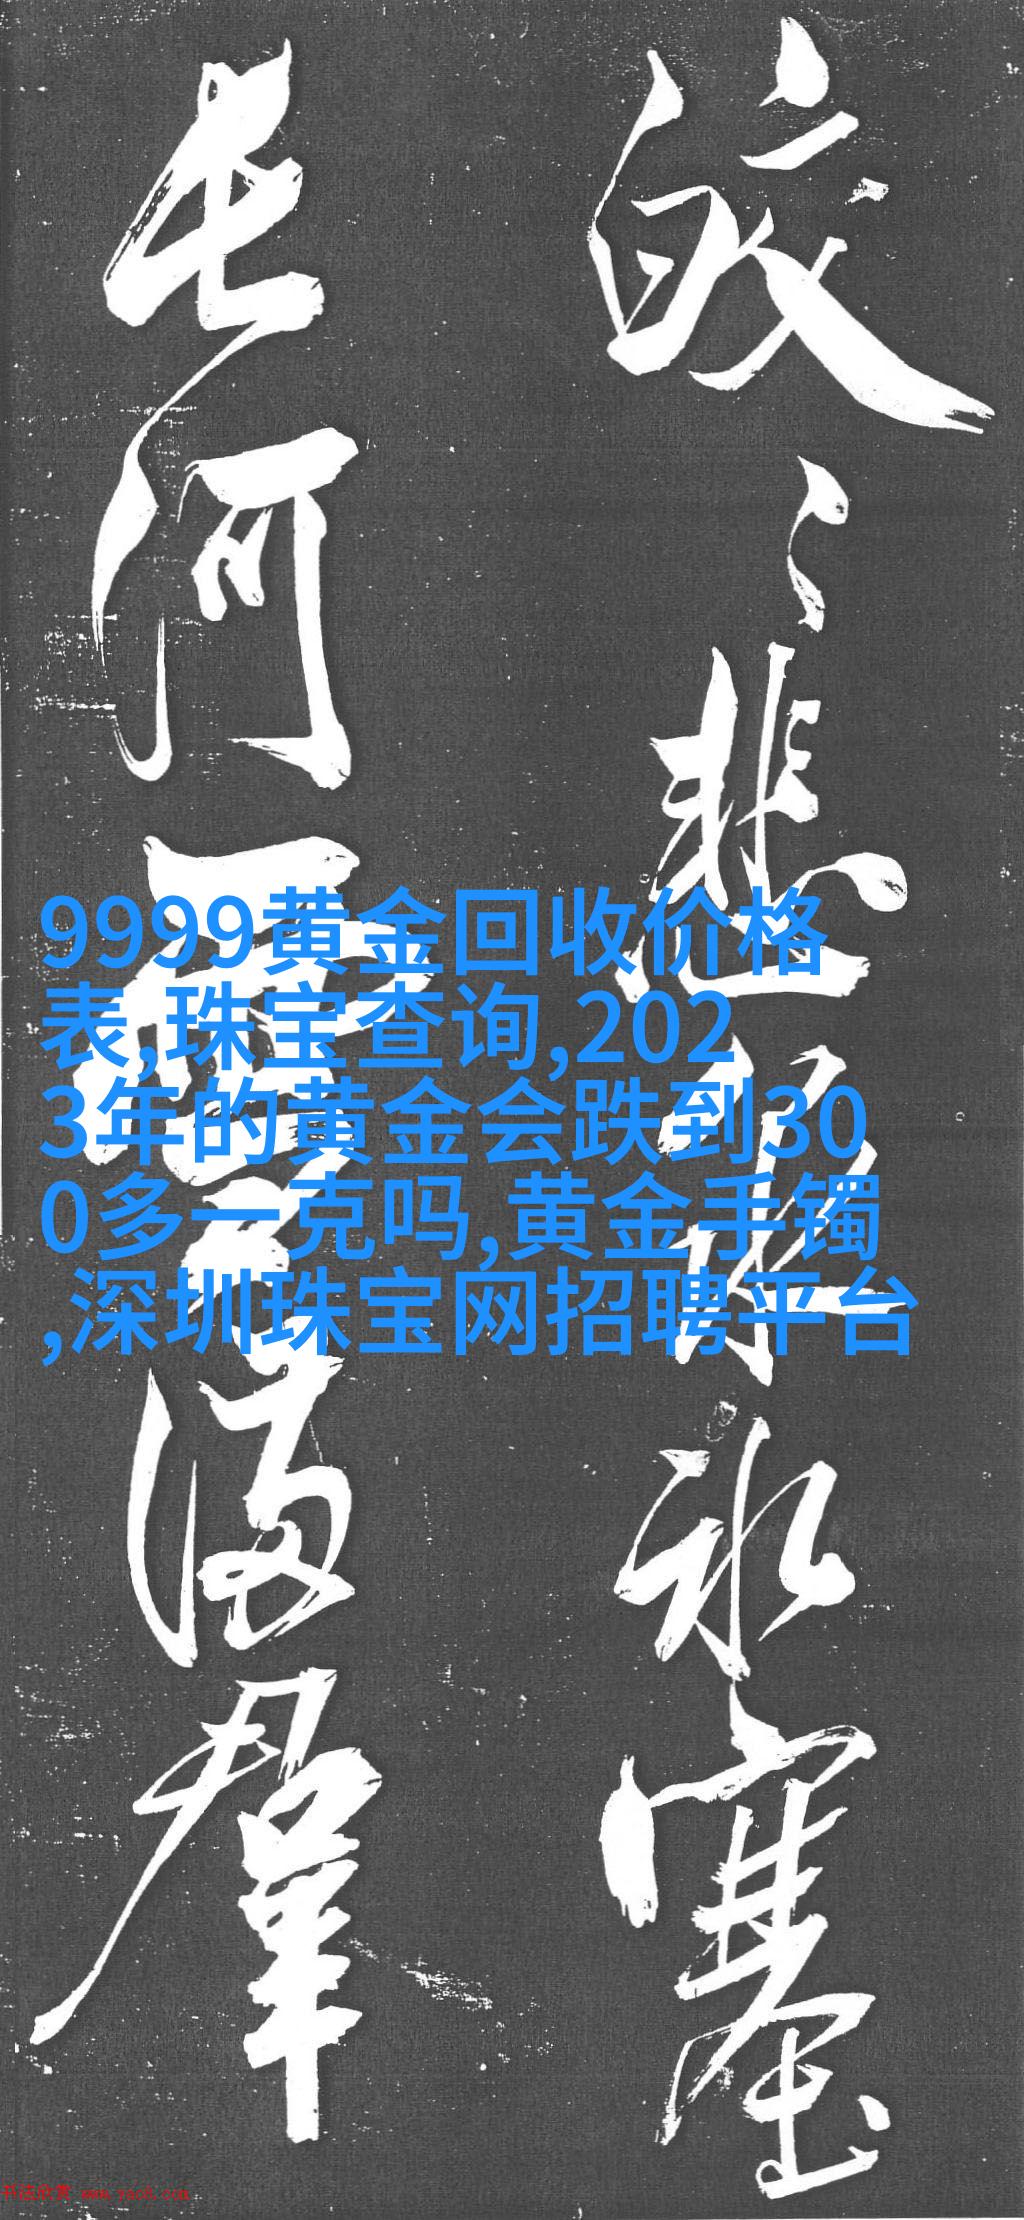 皎〻悲泉氷塞
長河雪滿羣
9999黄金回收价格
表,珠宝查询,202
3年的黄金会跌到30
0多一克吗,黄金手镯
,深圳珠宝网招聘平台
书法欣赏 www.yac8.com